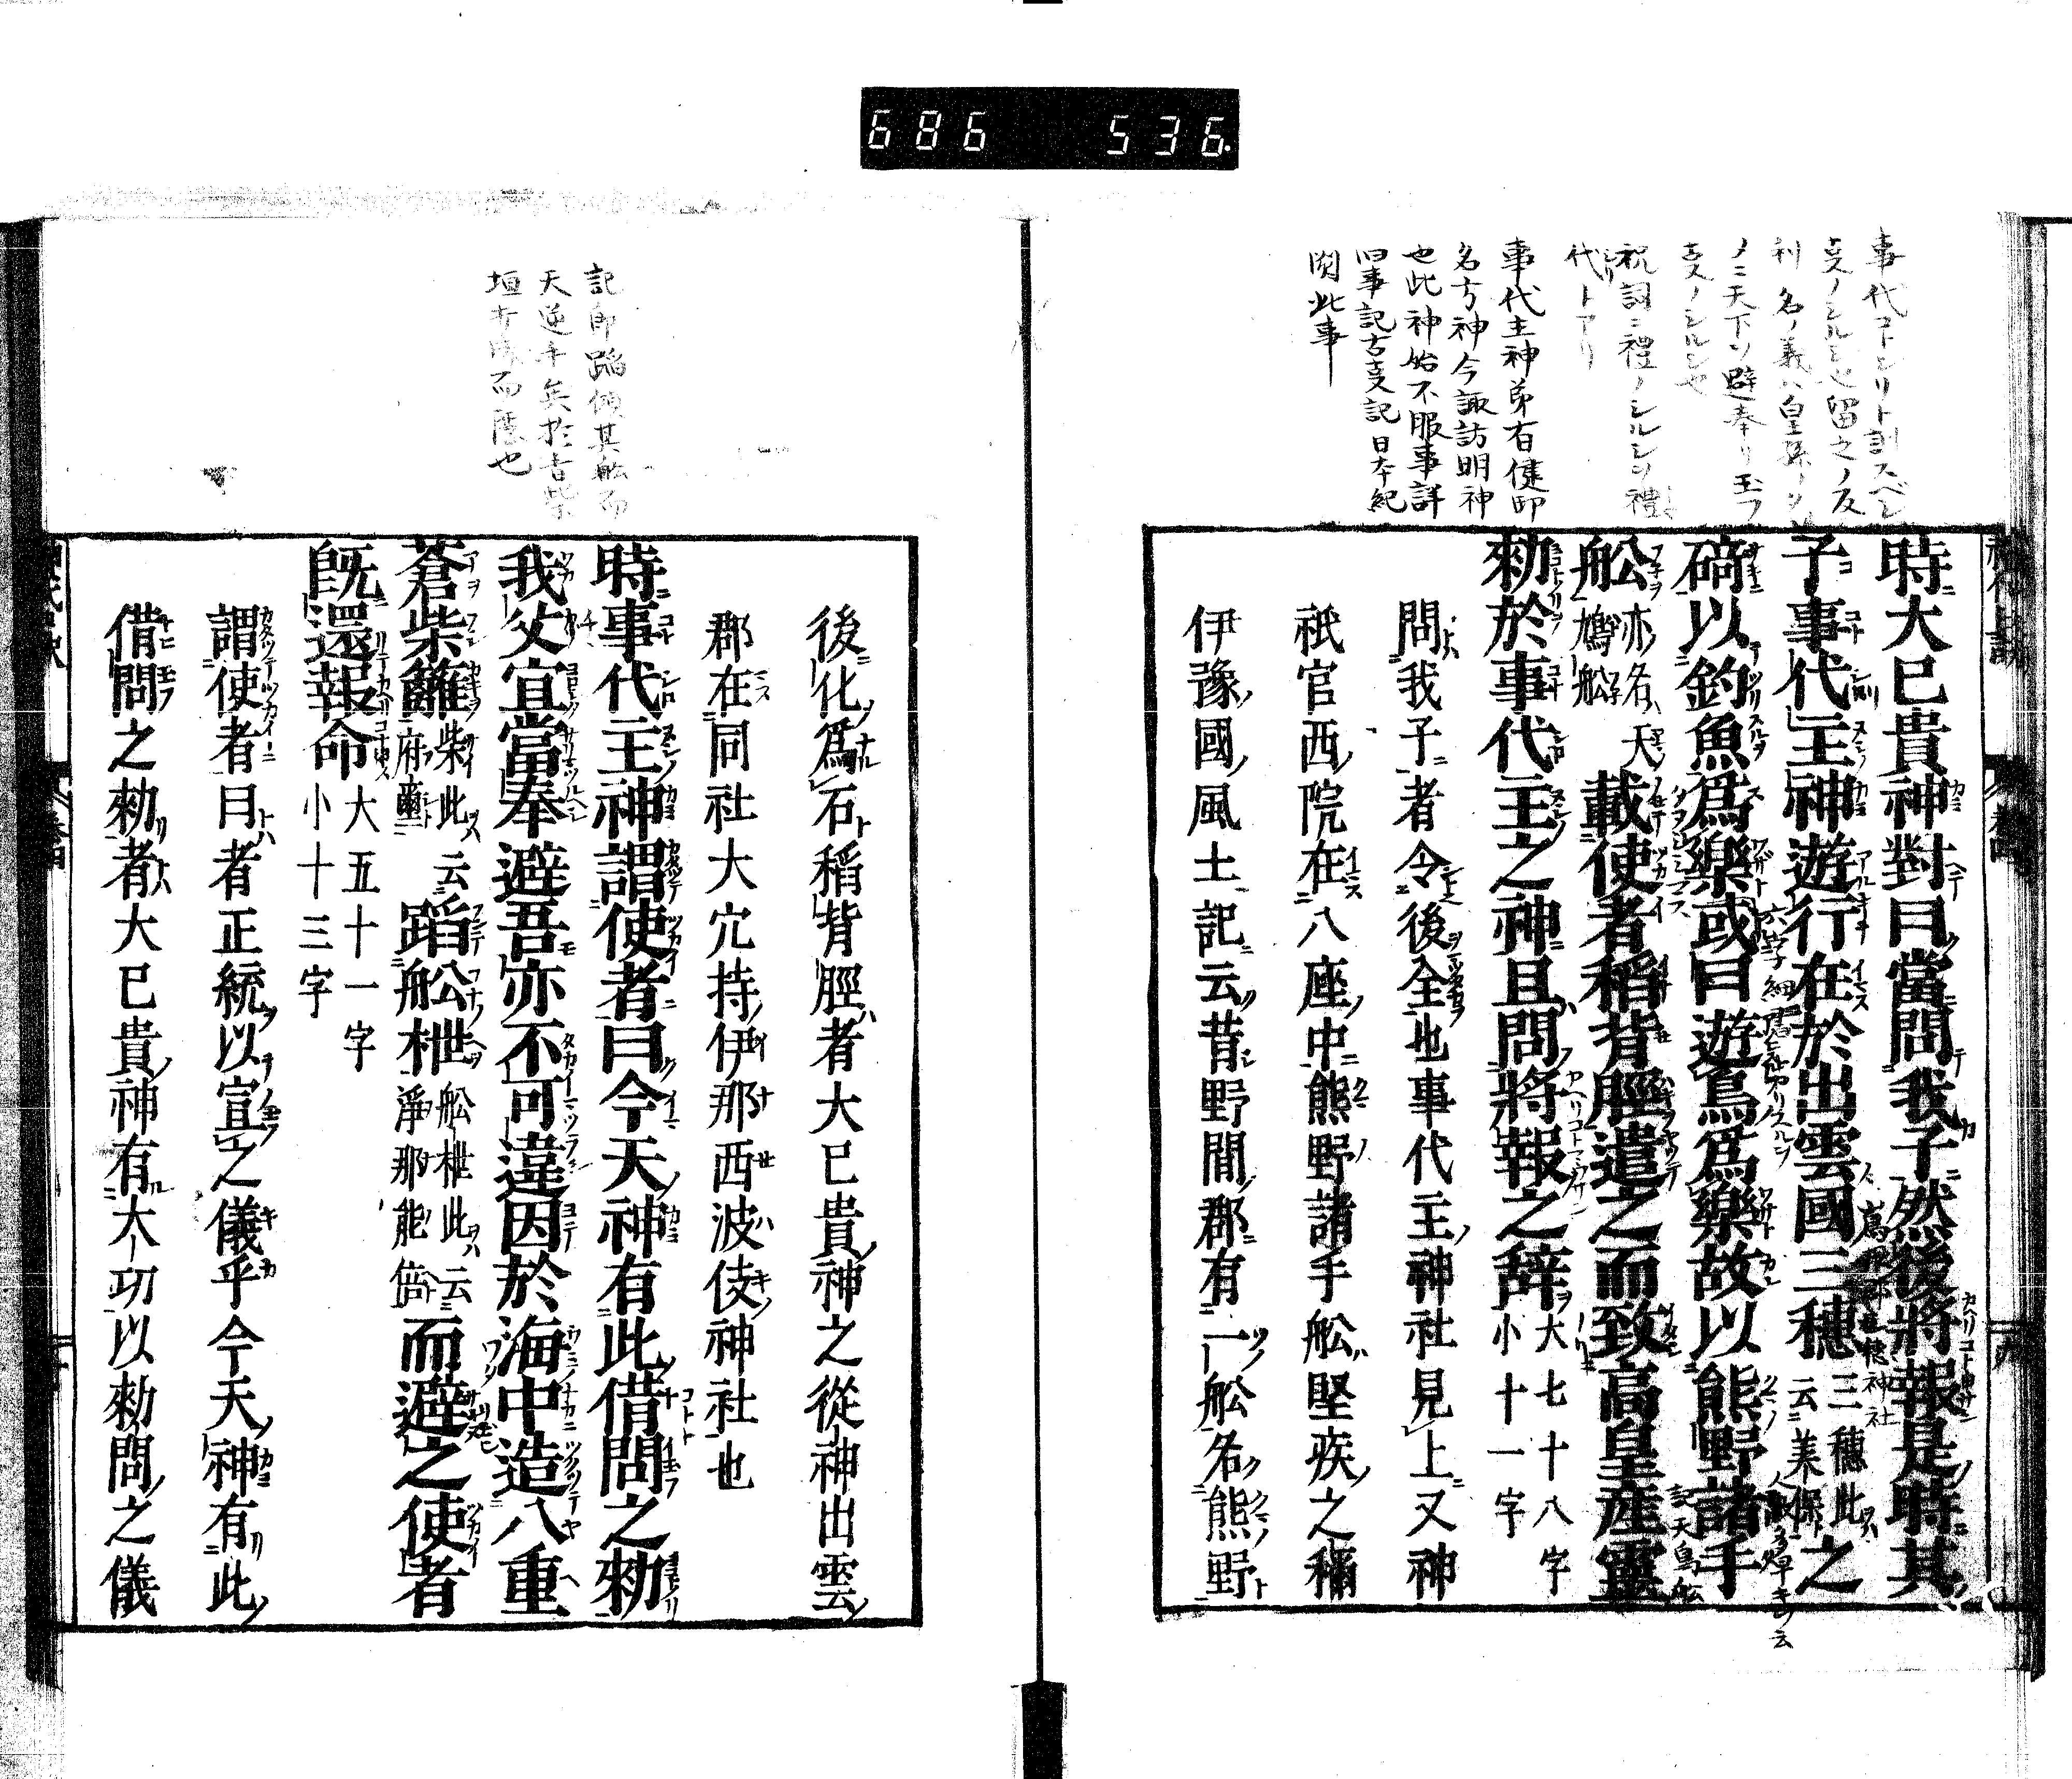 686 536
事代コトシリト訓スベシ
祝詞ニ禮ノシルシヲ禮
代トアリ
事代主神弟有健御
名方神今諏訪明神
也此神始不服事詳
旧事記古叓記日本紀
闕此事
時大已貴神對曰當問我子然後將報是時其
子事代主神遊行在於出雲國三穗三穗此云美保之
碕以釣魚爲樂或曰遊鳥爲樂故以熊野諸手
舩亦名天鳩舩載使者稻背脛遣之而致高皇産靈
勑於事代主之神且問將報之辞大七十八字小十一字
問我子者令後全也事代主神社見上又神
祇官西院在八座中熊野諸手舩堅疾之稱
伊豫國風土記云昔野間郡有一舩名熊野
記即蹈傾其舩而
天逆手矣於青柴
垣打成而隱也
後化爲石稻背脛者大已貴神之從神出雲
郡在同社大穴持伊那西波伎神社也
時事代主神謂使者曰今天神有此借問之勑
我父宜當奉避吾亦不可違因於海中造八重
蒼柴籬柴此云府璽蹈舩枻舩枻此云浮那能倍而避之使者
既還報命大五十一字小十三字
謂使者曰者正統以宣之儀乎今天神有此
借問之勑者大已貴神有大功以勑問之儀